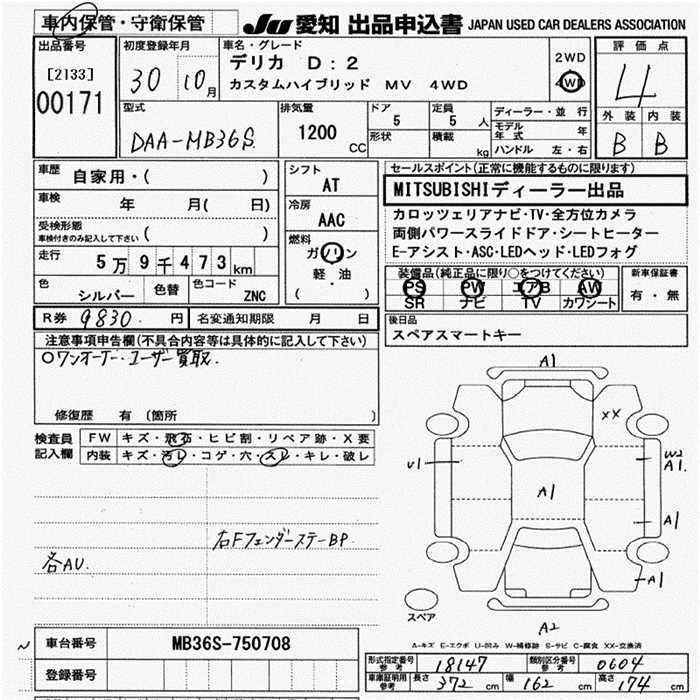 車内保管・守衛保管
JU 愛知 出品申込書 JAPAN USED CAR DEALERS ASSOCIATION
出品番号
[2133]
00171
初度登録年月
30 10月
車名・グレード
デリカ D:2
カスタムハイブリッド MV 4WD
2WD
4WD
評価点
4
外装 内装
B B
型式
DAA-MB36S
排気量
1200 CC
ドア
5
形状
定員
5 人
積載
kg
ディーラー・並行
モデル年式 年
ハンドル 左・右
車歴
自家用・( )
車検
年 月( 日)
受検形態
車検付きのみ記入して下さい ( )
走行
5万9千473km
色
シルバー
色替
色コード
ZNC
シフト
AT
冷房
AAC
燃料
ガソリン
軽・油
( )
セールスポイント(正常に機能するものに限ります)
MITSUBISHIディーラー出品
カロッツェリアナビ・TV・全方位カメラ
両側パワースライドドア・シートヒーター
E-アシスト・ASC・LEDヘッド・LEDフォグ
装備品(純正品に限り○をつけてください)
PS PW エアB AW
SR ナビ TV カワシート
新車保証書
有・無
R券 9830. 円 名変通知期限 月 日
後日品
スペアスマートキー
注意事項申告欄(不具合内容等は具体的に記入して下さい)
○ワンオーナー・ユーザー買取.
修復歴 有 (箇所 )
検査員
記入欄
FW キズ・飛石・ヒビ割・リペア跡・X要
内装 キズ・汚レ・コゲ・穴・スレ・キレ・破レ
右Fフェンダーステー BP.
各AU.
A1
XX
U1
W2
A1
A1
A1
A1
スペア
A2
A-キズ E-エクボ U-凹み W-補修跡 S-サビ C-腐食 XX-交換済
車台番号 MB36S-750708
登録番号
形式指定番号
参考
18147
類別区分番号
参考
0604
車庫証明用
参考
長さ 372 cm 幅 162 cm 高さ 174 cm